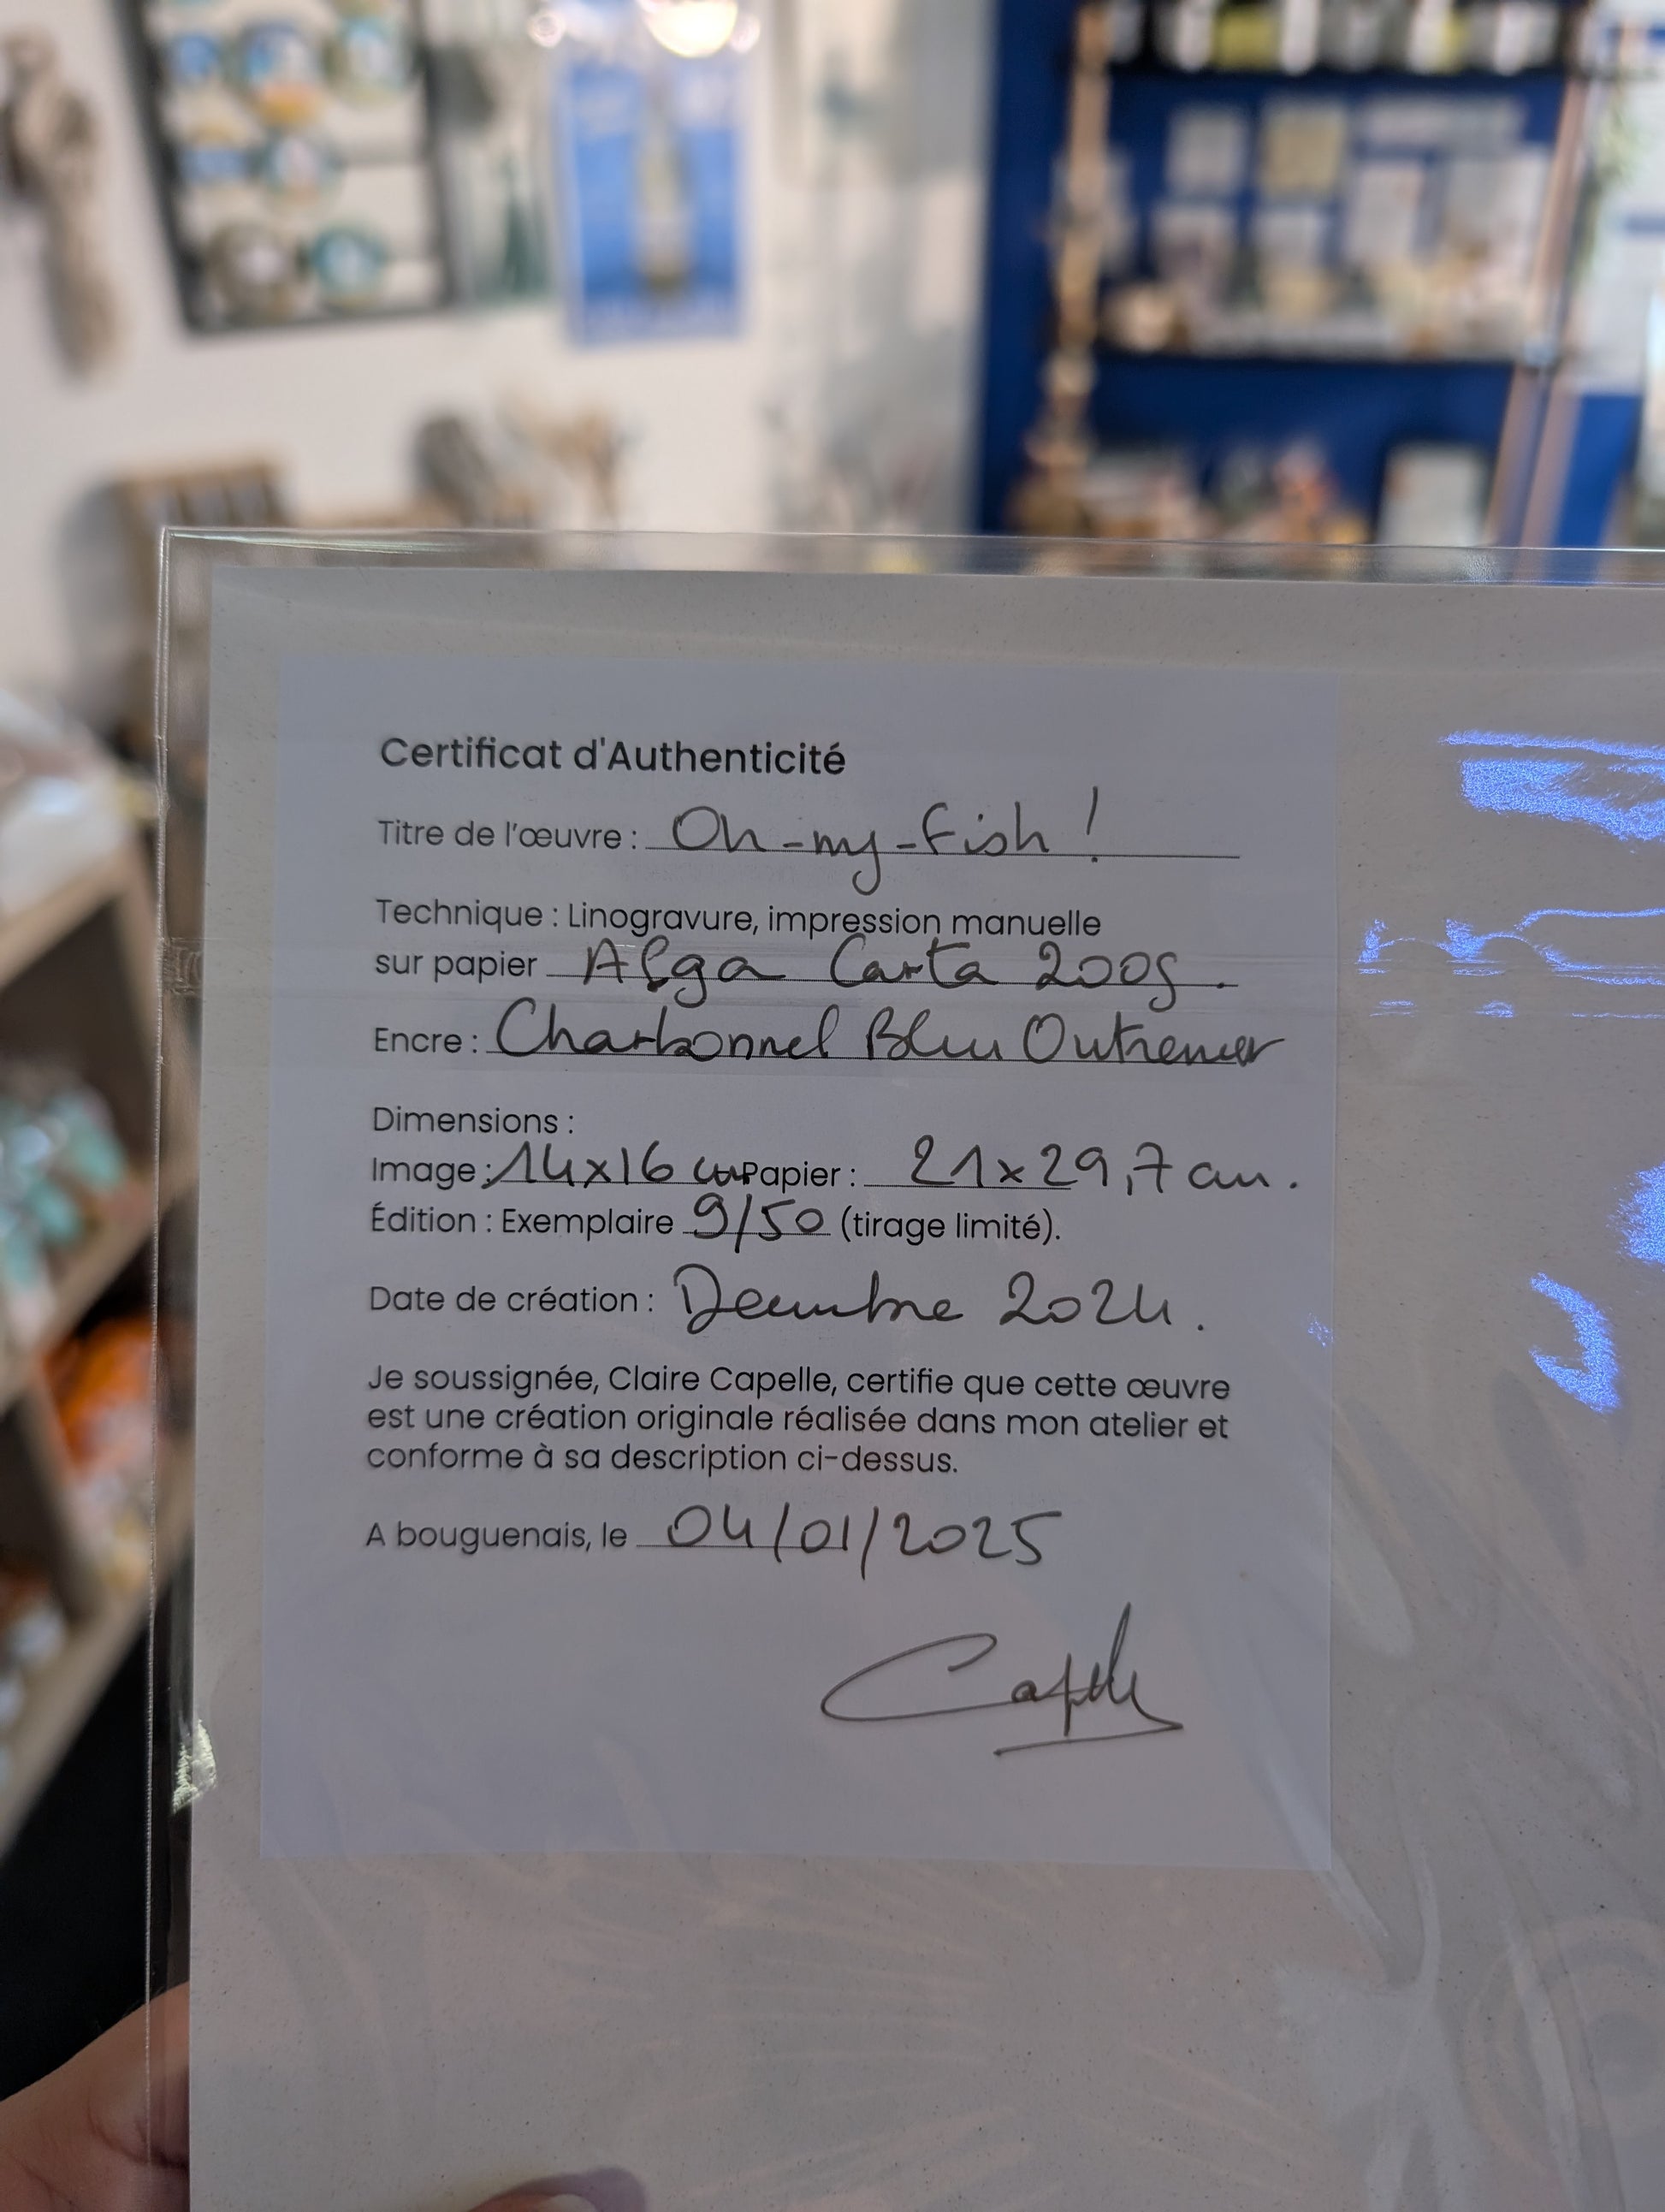 Certificat d'Authenticité
Titre de l'œuvre : Oh-my-fish !
Technique : Linogravure, impression manuelle
sur papier Alga Carta 200g.
Encre : Charbonnel Bleu Outremer
Dimensions :
Image : 14x16 cm Papier : 21x29,7 cm.
Édition : Exemplaire 9/50 (tirage limité).
Date de création : Decembre 2024.
Je soussignée, Claire Capelle, certifie que cette œuvre
est une création originale réalisée dans mon atelier et
conforme à sa description ci-dessus.
A bouguenais, le 04/01/2025
Capelle